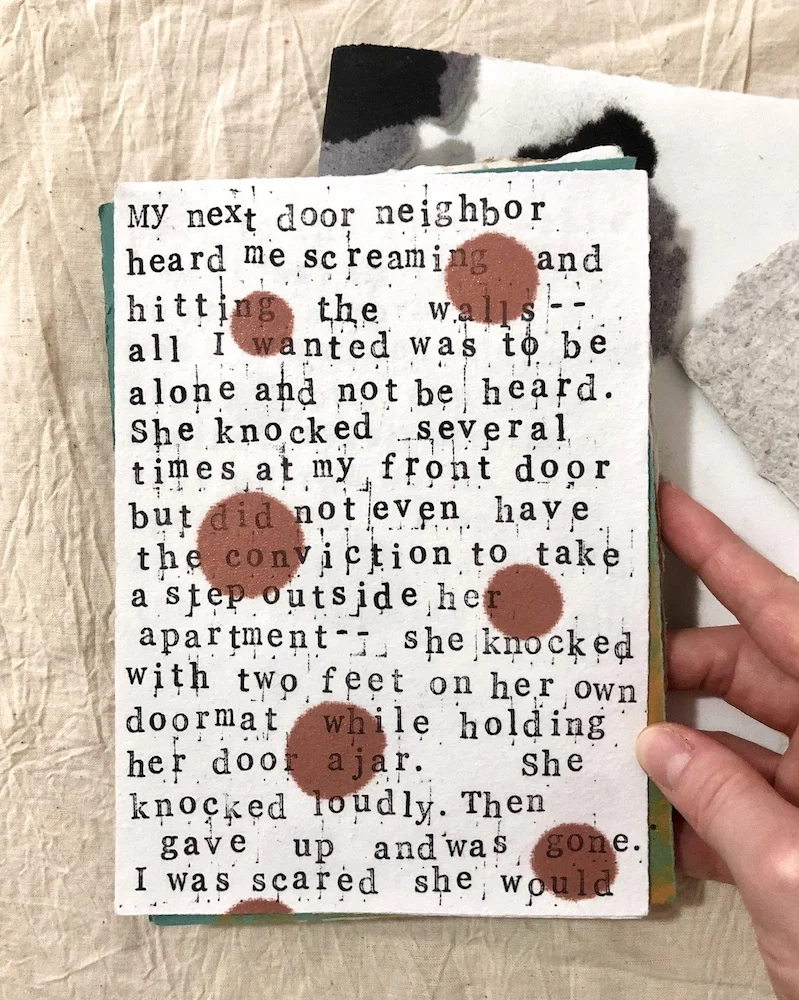 My next door neighbor
heard me screaming and
hitting the walls--
all I wanted was to be
alone and not be heard.
She knocked several
times at my front door
but did not even have
the conviction to take
a step outside her
apartment-- she knocked
with two feet on her own
doormat while holding
her door ajar. She
knocked loudly. Then
gave up and was gone.
I was scared she would